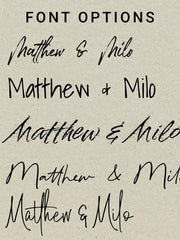 FONT OPTIONS
Matthew & Milo
Matthew & Milo
Matthew & Milo
Matthew & Mil
Matthew & Milo